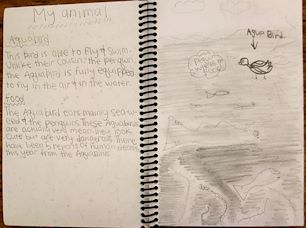 My animal
Aquabird
This bird is able to fly & swim.
Unlike their cousin the penguin,
the Aquabird is fully equipped
to fly in the air & in the water.
Food
The Aqua bird eats mainly sea
& the penguins. These Aquabirds
are actually very mean they look
cute but are very dangerous. There
have been 5 reports of human
this year from the Aquabirds.
Aqua Bird